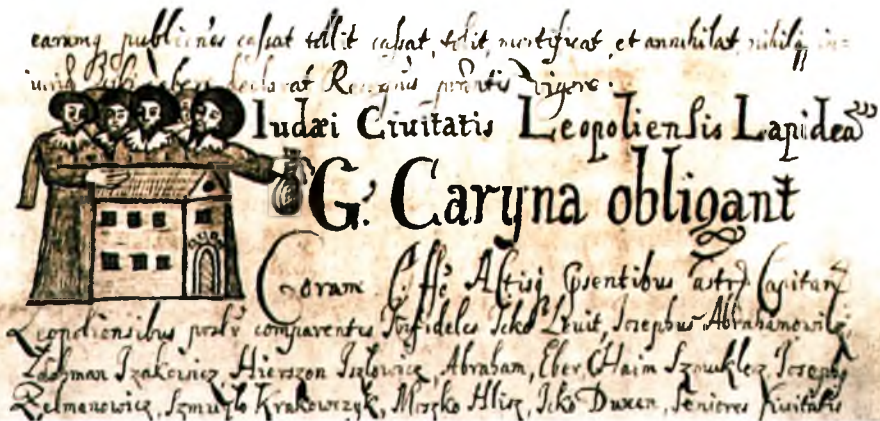 earumq publicnes cassat tollit cassat, tolit, mortificat, et annihilat, nihilq in=
Recognis pntis vigore.
Iudæi Ciuitatis Leopoliensis Lapideā
G. Caryna obligant
Coram Offo Actisq psentibus Castr. Capitan
Leopoliensibus psonlr comparentes Infideles Icko Leuit, Iosephus Abrahamowicz,
Zachman Izakowicz, Hierszon Iszlowicz, Abraham, Eber, Chaim Szmuklerz, Ioseph
Zelmanowicz, Szmuylo Krakowczyk, Moszko Hlisz, Icko Duxen, Seniores Ciuitatis